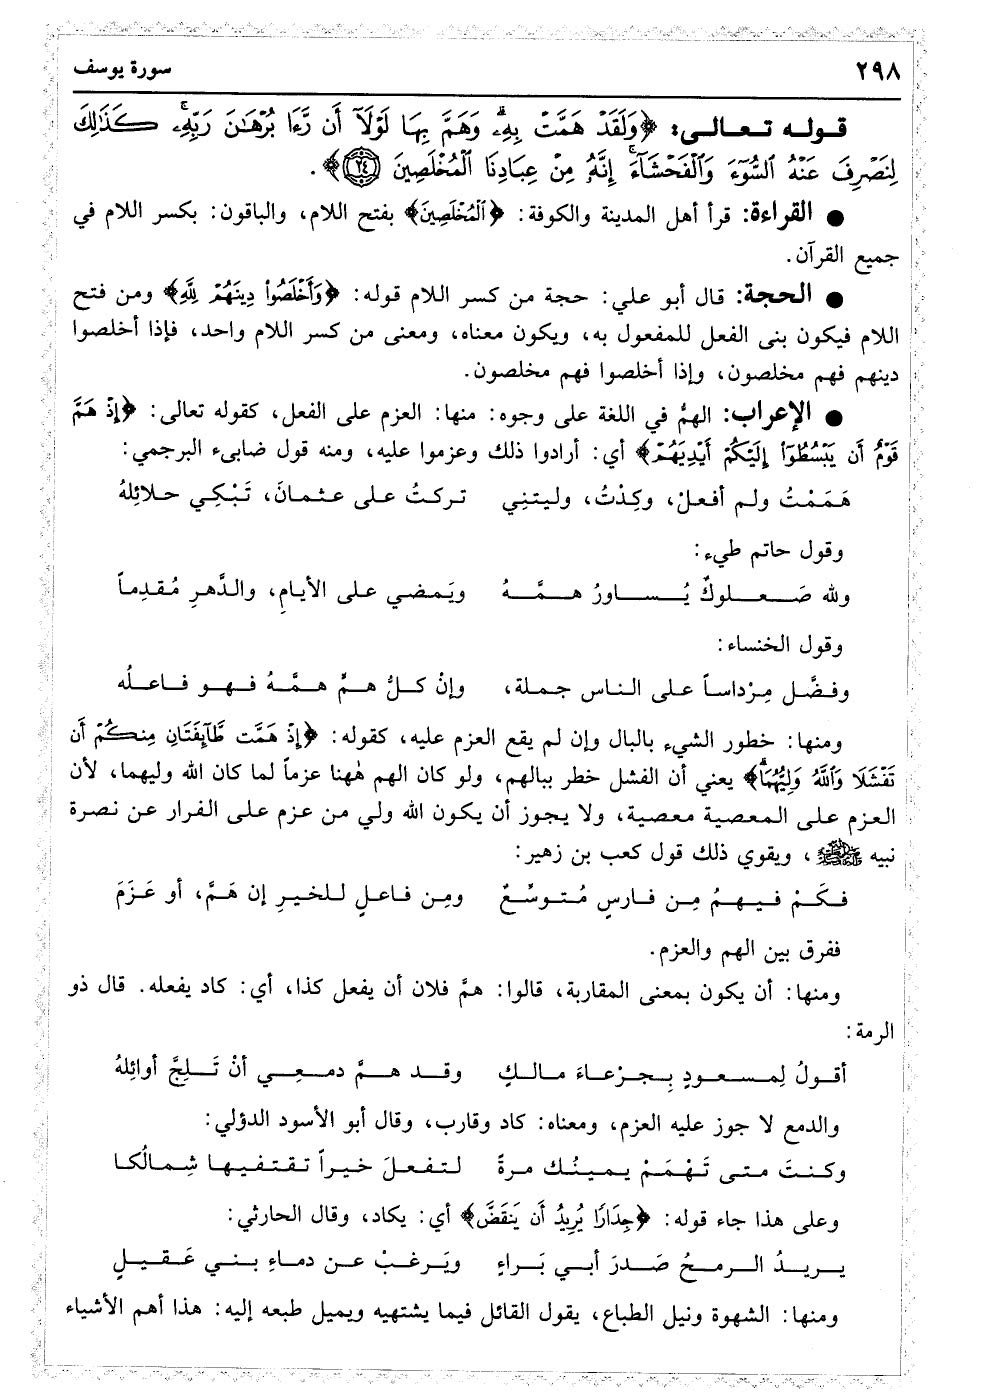 ٢٩٨ سورة يوسف
قوله تعالى: ﴿وَلَقَدْ هَمَّتْ بِهِۦ وَهَمَّ بِهَا لَوْلَآ أَن رَّءَا بُرْهَٰنَ رَبِّهِۦ كَذَٰلِكَ
لِنَصْرِفَ عَنْهُ ٱلسُّوٓءَ وَٱلْفَحْشَآءَ إِنَّهُۥ مِنْ عِبَادِنَا ٱلْمُخْلَصِينَ ٢٤﴾.
● القراءة: قرأ أهل المدينة والكوفة: ﴿ٱلْمُخْلَصِينَ﴾ بفتح اللام، والباقون: بكسر اللام في
جميع القرآن.
● الحجة: قال أبو علي: حجة من كسر اللام قوله: ﴿وَأَخْلَصُوا۟ دِينَهُمْ لِلَّهِ﴾ ومن فتح
اللام فيكون بنى الفعل للمفعول به، ويكون معناه، ومعنى من كسر اللام واحد، فإذا أخلصوا
دينهم فهم مخلصون، وإذا أخلصوا فهم مخلصون.
● الإعراب: الهمُّ في اللغة على وجوه: منها: العزم على الفعل، كقوله تعالى: ﴿إِذْ هَمَّ
قَوْمٌ أَن يَبْسُطُوٓا۟ إِلَيْكُمْ أَيْدِيَهُمْ﴾ أي: أرادوا ذلك وعزموا عليه، ومنه قول ضابىء البرجمي:
هَمَمْتُ ولم أفعلْ، وكِدْتُ، وليتنِي تركتُ على عثمانَ، تَبْكِي حلائلهُ
وقول حاتم طيء:
ولله صَعلوكٌ يُساورُ همَّهُ ويَمضي على الأيامِ، والدَّهرِ مُقدِماً
وقول الخنساء:
وفضَّل مِرْداساً على الناس جملة، وإنْ كلُّ همٍّ همَّهُ فهو فاعلُه
ومنها: خطور الشيء بالبال وإن لم يقع العزم عليه، كقوله: ﴿إِذْ هَمَّت طَّآئِفَتَانِ مِنكُمْ أَن
تَفْشَلَا وَٱللَّهُ وَلِيُّهُمَا﴾ يعني أن الفشل خطر ببالهم، ولو كان الهم هٰهنا عزماً لما كان الله وليهما، لأن
العزم على المعصية معصية، ولا يجوز أن يكون الله ولي من عزم على الفرار عن نصرة
نبيه ﷺ، ويقوي ذلك قول كعب بن زهير:
فكَمْ فيهمُ مِن فارسٍ مُتوسِّعٌ ومِن فاعلٍ للخيرِ إن هَمَّ، أو عَزَمَ
ففرق بين الهم والعزم.
ومنها: أن يكون بمعنى المقاربة، قالوا: همَّ فلان أن يفعل كذا، أي: كاد يفعله. قال ذو
الرمة:
أقولُ لِمسعودٍ بِجرْعاءَ مالكٍ وقد همَّ دمعِي أنْ تَلِجَّ أوائِلهُ
والدمع لا جوز عليه العزم، ومعناه: كاد وقارب، وقال أبو الأسود الدؤلي:
وكنتَ متى تَهْمَمْ يمينُك مرةً لتفعلَ خيراً تقتفيها شِمالُكا
وعلى هذا جاء قوله: ﴿جِدَارًا يُرِيدُ أَن يَنقَضَّ﴾ أي: يكاد، وقال الحارثي:
يريدُ الرمحُ صَدرَ أبي بَراءٍ ويَرغبُ عن دماءِ بني عَقيلٍ
ومنها: الشهوة ونيل الطباع، يقول القائل فيما يشتهيه ويميل طبعه إليه: هذا أهم الأشياء